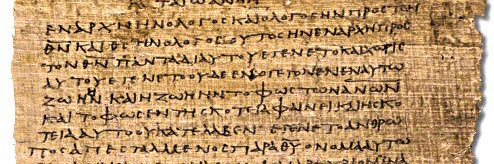 ΤΑΙΩΑΝΗΝ
ΕΝΑΡΧΗΗΝΟΛΟΓΟϹΚΑΙΟΛΟΓΟϹΗΝΠΡΟϹΤΟΝ
ΘΝΚΑΙΘϹΗΝΟΛΟΓΟϹΟΥΤΟϹΗΝΕΝΑΡΧΗΠΡΟϹ
ΤΟΝΘΝΠΑΝΤΑΔΙΑΥΤΟΥΕΓΕΝΕΤΟΚΑΙΧΩΡΙϹ
ΑΥΤΟΥΕΓΕΝΕΤΟΟΥΔΕΕΝΟΓΕΓΟΝΕΝΕΝΑΥΤΩ
ΖΩΗΗΝΚΑΙΗΖΩΗΗΝΤΟΦΩϹΤΩΝΑΝΩΝ
ΚΑΙΤΟΦΩϹΕΝΤΗϹΚΟΤΕΙΑΦΑΙΝΕΙΚΑΙΗϹΚΟ
ΤΕΙΑΑΥΤΟΟΥΚΑΤΕΛΑΒΕΝ ΕΓΕΝΕΤΟΑΝΘΡΩ
ΠΟϹΑΠΕϹΤΑΛΜΕΝΟϹΠΑΡΑΘΥΟΝΟΜΑΑΥΤΩ